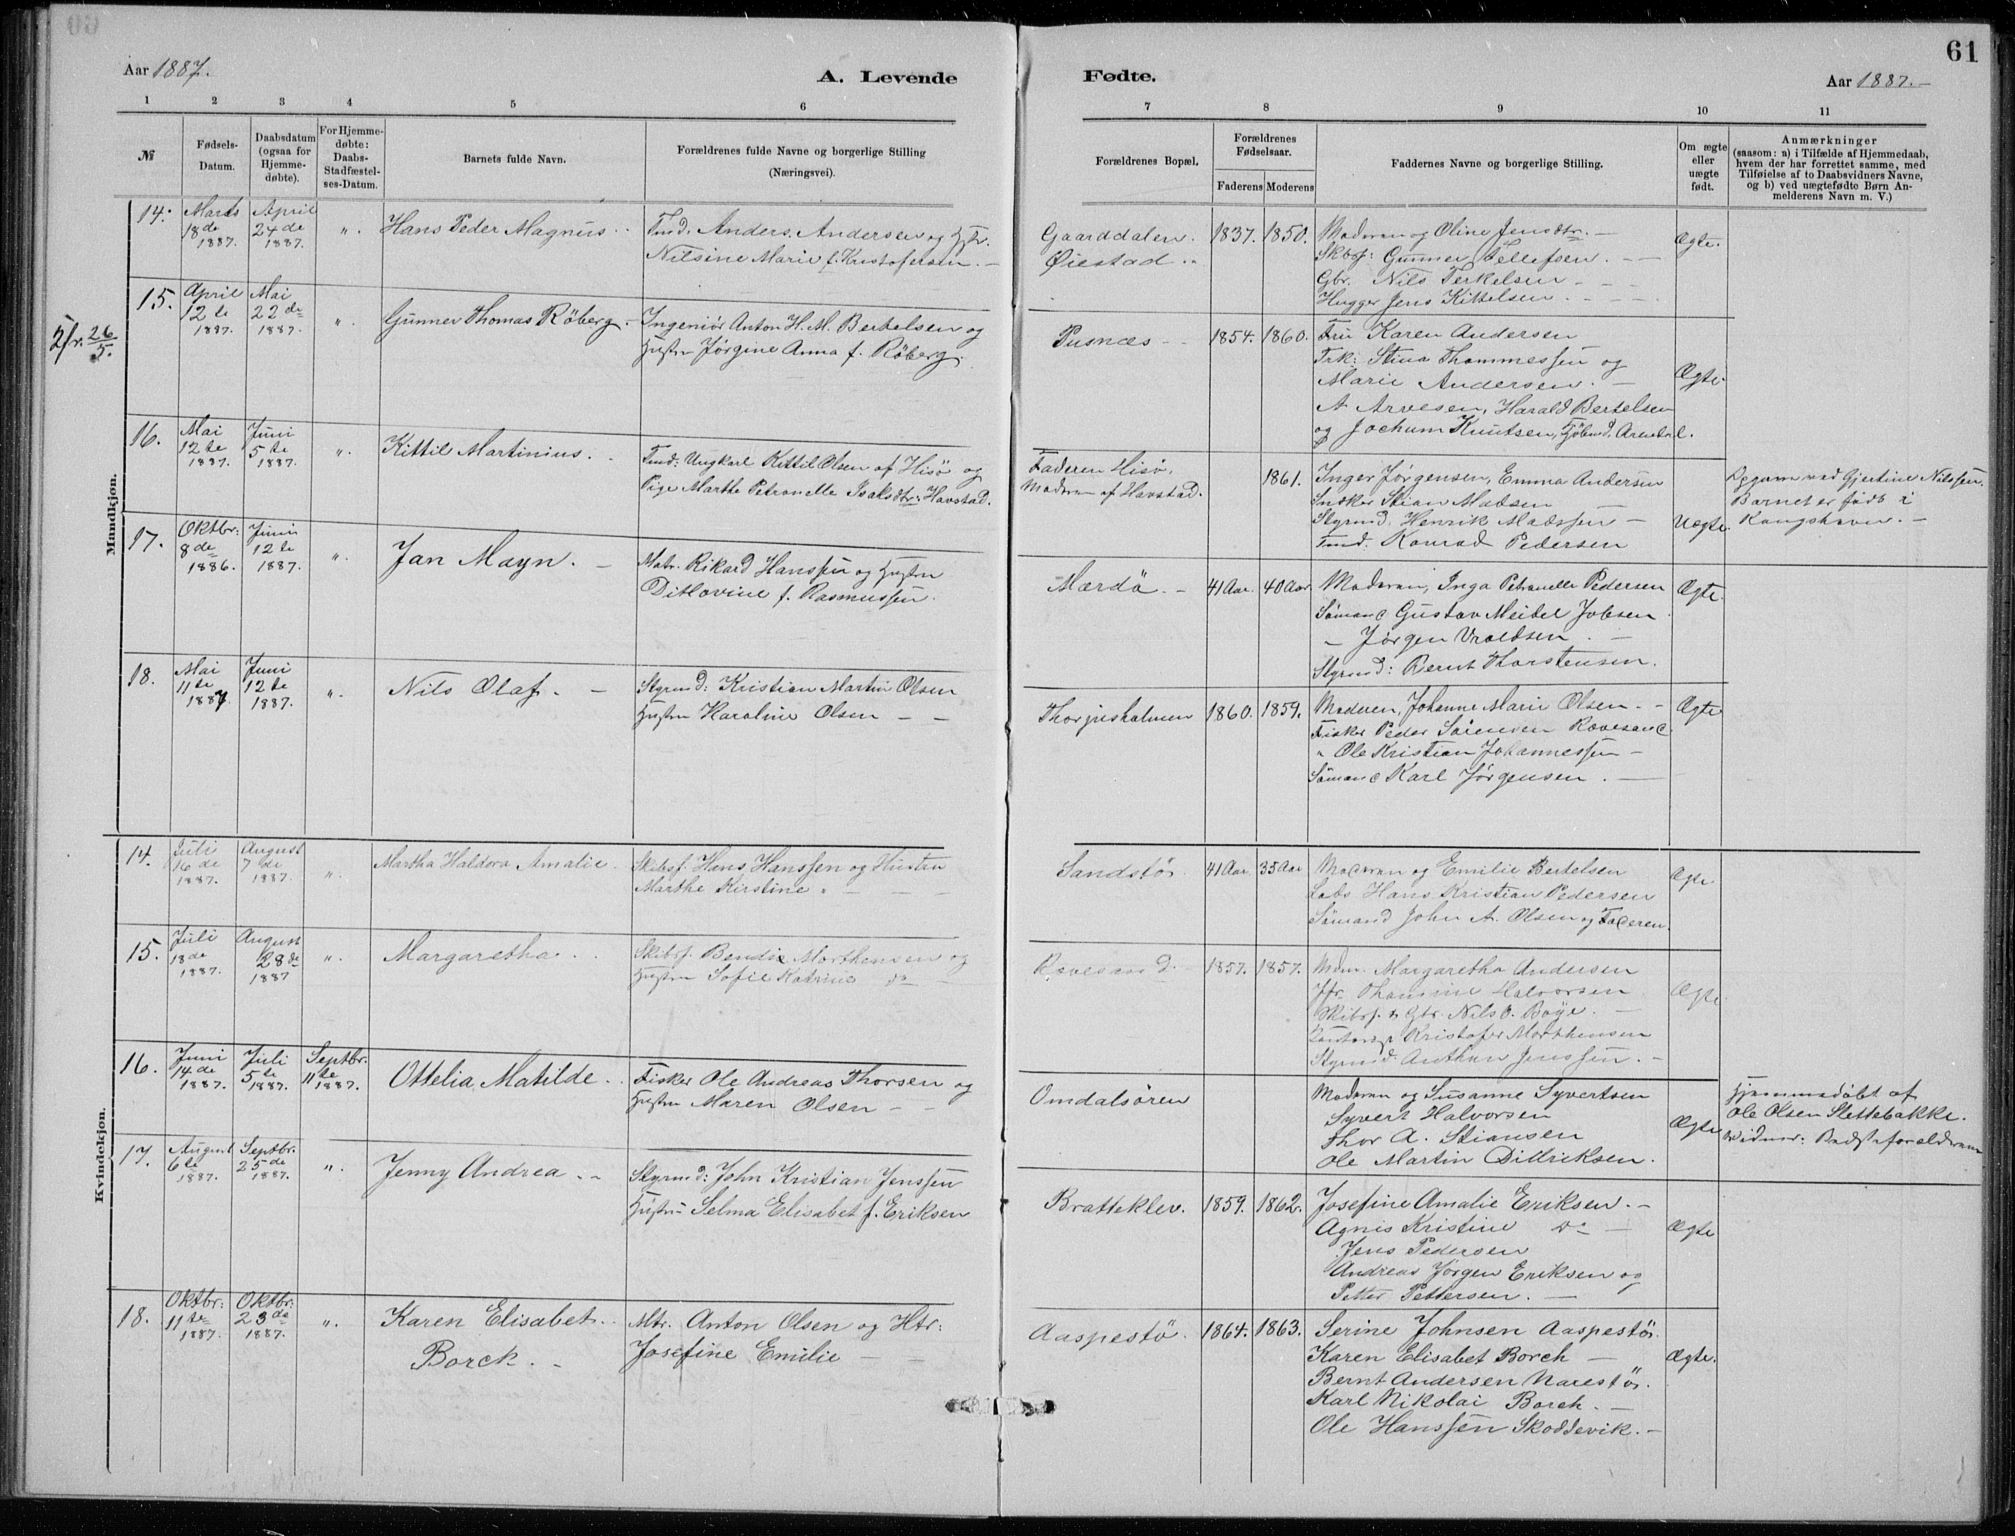 61
Aar 1887.
A. Levende
Fødte.
Aar 1887.—
1 2 3 4 5 6
7 8 9 10 11
№
Fødsels-
Datum.
Daabsdatum
(ogsaa for
Hjemme-
døbte).
For Hjemme-
døbte:
Daabs-
Stadfæstel-
ses-Datum.
Barnets fulde Navn.
Forældrenes fulde Navne og borgerlige Stilling
(Næringsvei).
Forældrenes Bopæl.
Forældrenes
Fødselsaar.
Faderens Moderens
Faddernes Navne og borgerlige Stilling.
Om ægte
eller
uægte
født.
Anmærkninger
(saasom: a) i Tilfælde af Hjemmedaab,
hvem der har forrettet samme, med
Tilføielse af to Daabsvidners Navne,
og b) ved uægtefødte Børn An-
melderens Navn m. V.)
Mandkjøn.
14.
Marts
18de
1887.
April
24de
1887.
"
Hans Peder Magnus
Tmd. Anders Andersen og Htr.
Nilsine Marie f. Kristofersen. —
Gaarddalen.
Øiestad
1837. 1850.
Moderen og Oline Jensdtr. —
Skbsf: Gunner Tellefsen. — —
Gbr. Nils Terkelsen — — —
Hugger Jens Kittelsen. — — —
Ægte.
26/5.
15.
April
12te
1887.
Mai
22de
1887.
"
Gunner Thomas Röberg —
Ingeniör Anton H. M. Bertelsen og
Hustru Jørgine Anna f. Röberg.
Pusnæs —
1854. 1860.
Fru Karen Andersen
Frk: Stina Thommessen og
Marie Andersen. —
A Arvesen, Harald Bertelsen
og Jochum Knutsen, Arendal.
Ægte
16.
Mai
12te
1887.
Juni
5te
1887.
"
Kittil Martinius.
Tmd: Ungkarl Kittil Olsen af Hisö og
Pige Marthe Petronelle Isaksdtr: Havstad.
Faderen Hisö,
Moderen af Havstad.
1861.
Inger Jørgensen, Emma Andersen
Snedker Stian Madsen —
Styrmd. Henrik Madssen —
Tmd: Konrad Pedersen
Uægte
ved Gjertine Nilssen.
Barnet er født i
Kongshavn. —
17.
Oktbr:
8de
1886.
Juni
12te
1887.
"
Jan Mayn. —
Matr. Rikard Hanssen og Hustru
Ditlovine f. Rasmussen.
Mærdö. —
41 Aar. 40 Aar
Moderen, Inga Petronelle Pedersen
Sömand Gustav Meidel Jobsen
— Jørgen Vroldsen. —
Styrmd: Bernt Thorstensen.
Ægte.
18.
Mai
11te
1887.
Juni
12te
1887.
"
Nils Olaf. —
Styrmd: Kristian Martin Olsen
Hustru Karoline Olsen — —
Thorjusholmen
1860. 1859.
Moderen, Johanne Marie Olsen. —
Fisker Peder Sörensen Rævesand
" Ole Kristian Johannessen —
Sömand Karl Jørgensen. —
Ægte
Kvindekjøn.
14.
Juli
16de
1887.
August
7de
1887.
"
Martha Haldora Amalie
Skibsf. Hans Hanssen og Hustru
Marthe Kirstine " — — —
Sandstø.
41 Aar. 35 Aar
Moderen og Emilie Bertelsen
Lods Hans Kristian Pedersen
Sömand John A. Olsen og Faderen.
Ægte.
15.
Juli
18de
1887.
August
28de
1887
"
Margaretha.
Skibsf. Bendix Morthensen og
Hustru Sofie Katrine do —
Rævesand. —
1857. 1857.
Mdm. Margaretha Andersen
Jfr. Thomine Halvorsen
Skibsf. & Gbr. Nils O. Boye. —
Kristofer Morthensen
Styrmd. Anthon Jenssen. —
Ægte
16.
Juni
14de
1887.
Juli
5te
1887.
Septbr.
11te
1887.
Ottelia Matilde.
Fisker Ole Andreas Thorsen og
Hustru Maren Olsen — —
Omdalsören
Moderen og Susanne Syvertsen
Syvert Halvorsen
Thor A. Stiansen
Ole Martin Didriksen.
Ægte
Hjemmedöbt af
Ole Olsen Slettebakke.
Vidner: Bedsteforældrene
17.
August
6te
1887.
Septbr.
25de
1887.
"
Jenny Andrea. —
Styrmd: John Kristian Jenssen
Hustru Selma Elisabet f. Eriksen
Bratteklev.
1859. 1862.
Josefine Amalie Eriksen. —
Agnis Kristine do —
Jens Pedersen
Andreas Jørgen Eriksen og
Petter Pettersen. —
Ægte
18.
Oktbr:
11te
1887.
Oktbr:
23de
1887.
"
Karen Elisabet
Borck. —
Mtr. Anton Olsen og Htr:
Josefine Emilie — —
Aaspestö.
1864. 1863.
Serine Johnsen Aaspestö.
Karen Elisabet Borch —
Bernt Andersen Narestö.
Karl Nikolai Borch. —
Ole Hanssen Skoddevik. —
Ægte.